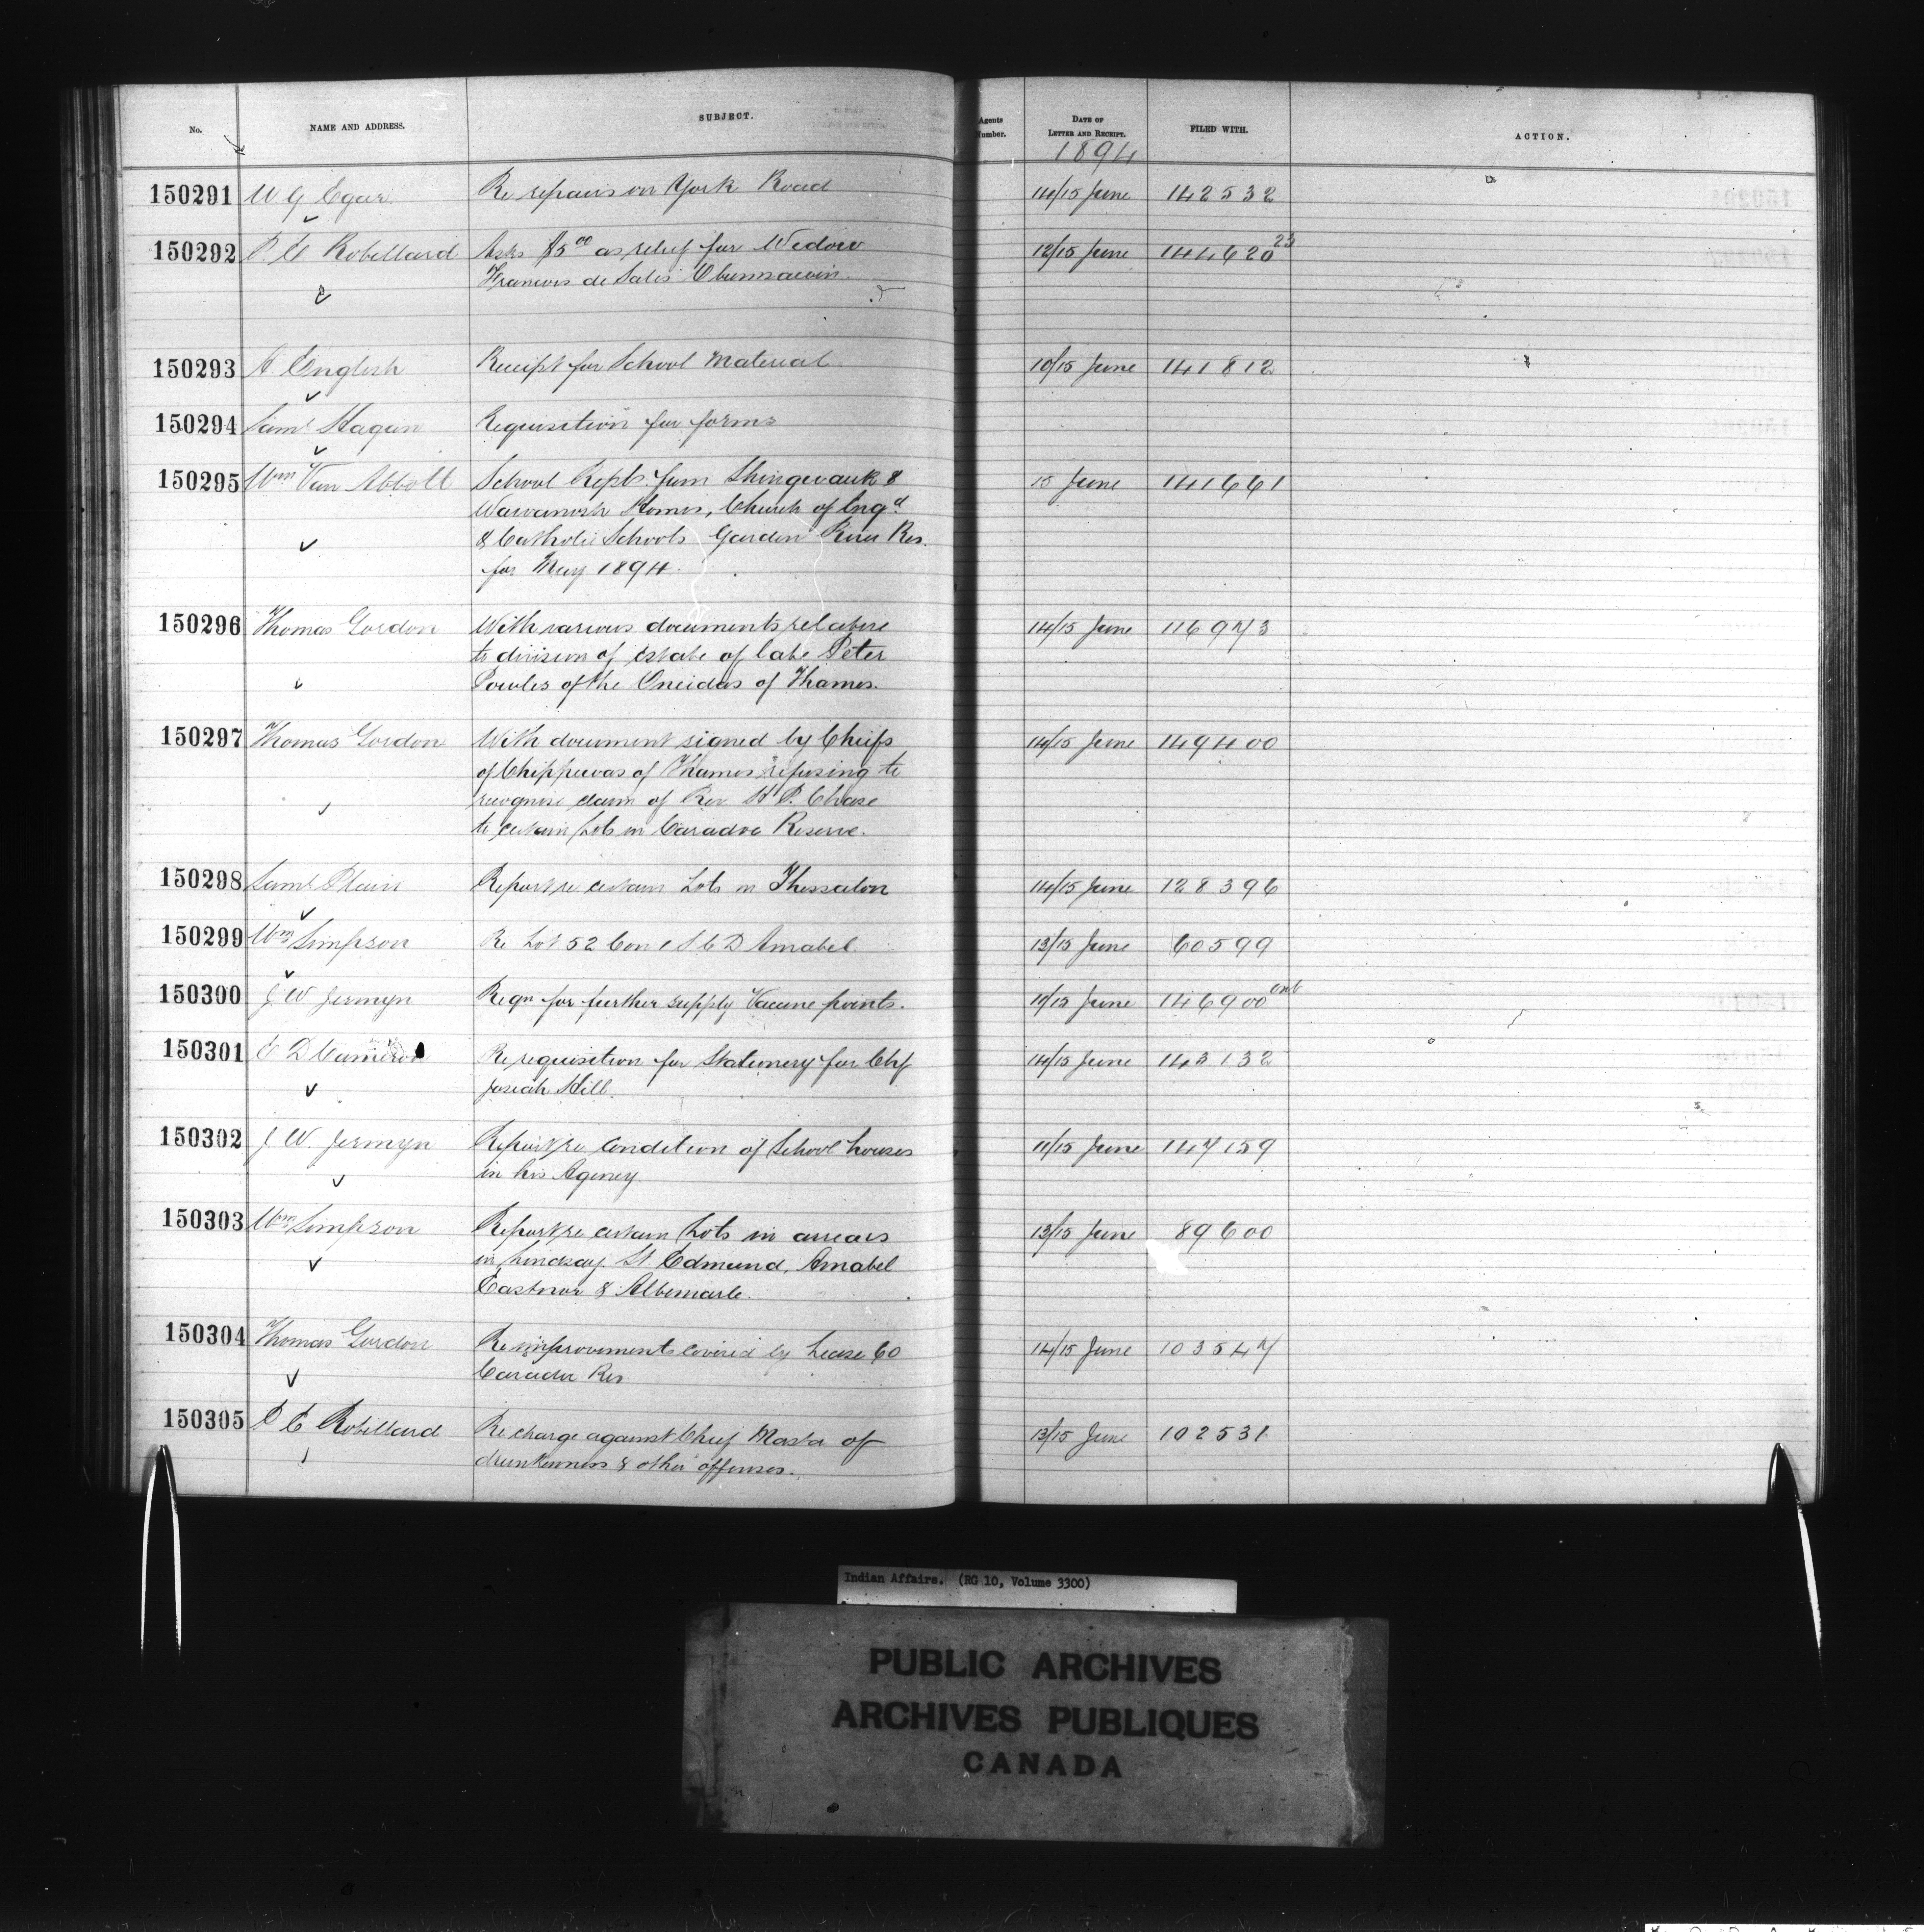 No.	NAME AND ADDRESS.	SUBJECT.	Agents Number.	DATE OF LETTER AND RECEIPT.	FILED WITH.	ACTION.
1894
150291	W G Egar	Re repairs on York Road	14/15 June	142532
150292	P. E Robillard	Asks $5 00 as relief for Widow	12/15 June	144620 23
Francois de Sales
150293	A. English	Receipt for School Material	10/15 June	141812
150294	Saml Hagan	Requisition for forms
150295	Wm Van Abbott	School Repts. from Shingwauk &	15 June	141661
Wawanosh Homes, Church of Engd
& Catholic Schools Garden River Res.
for May 1894.
150296	Thomas Gordon	With various documents relative	14/15 June	116973
to division of estate of late Peter
Powles of the Oneidas of Thames.
150297	Thomas Gordon	With document signed by Chiefs	14/15 June	149400
of Chippewas of Thames refusing to
recognise claim of Rev H P. Chase
to certain Lots in Caradoc Reserve.
150298	Saml Plain	Report re certain Lots in Thessalon	14/15 June	128396
150299	Wm Simpson	Re Lot 52 Con 1 S C D Amabel	13/15 June	60599
150300	J W Jermyn	Reqn for further supply Vaccine points.	11/15 June	146900 Ont
150301	E D Cameron	Re requisition for Stationery for Chf	14/15 June	143132
Josiah Hill.
150302	J W. Jermyn	Report re condition of School houses	11/15 June	147159
in his Agency
150303	Wm Simpson	Report re certain Lots in arrears	13/15 June	89600
in Lindsay. St Edmund, Amabel
Eastnor & Albemarle.
150304	Thomas Gordon	Re improvements covered by Lease 60	14/15 June	103547
Caradoc Res
150305	P E Robillard	Re charge against Chief Masta of	13/15 June	102531
drunkenness & other offenses.
Indian Affairs. (RG 10, Volume 3300)
PUBLIC ARCHIVES
ARCHIVES PUBLIQUES
CANADA